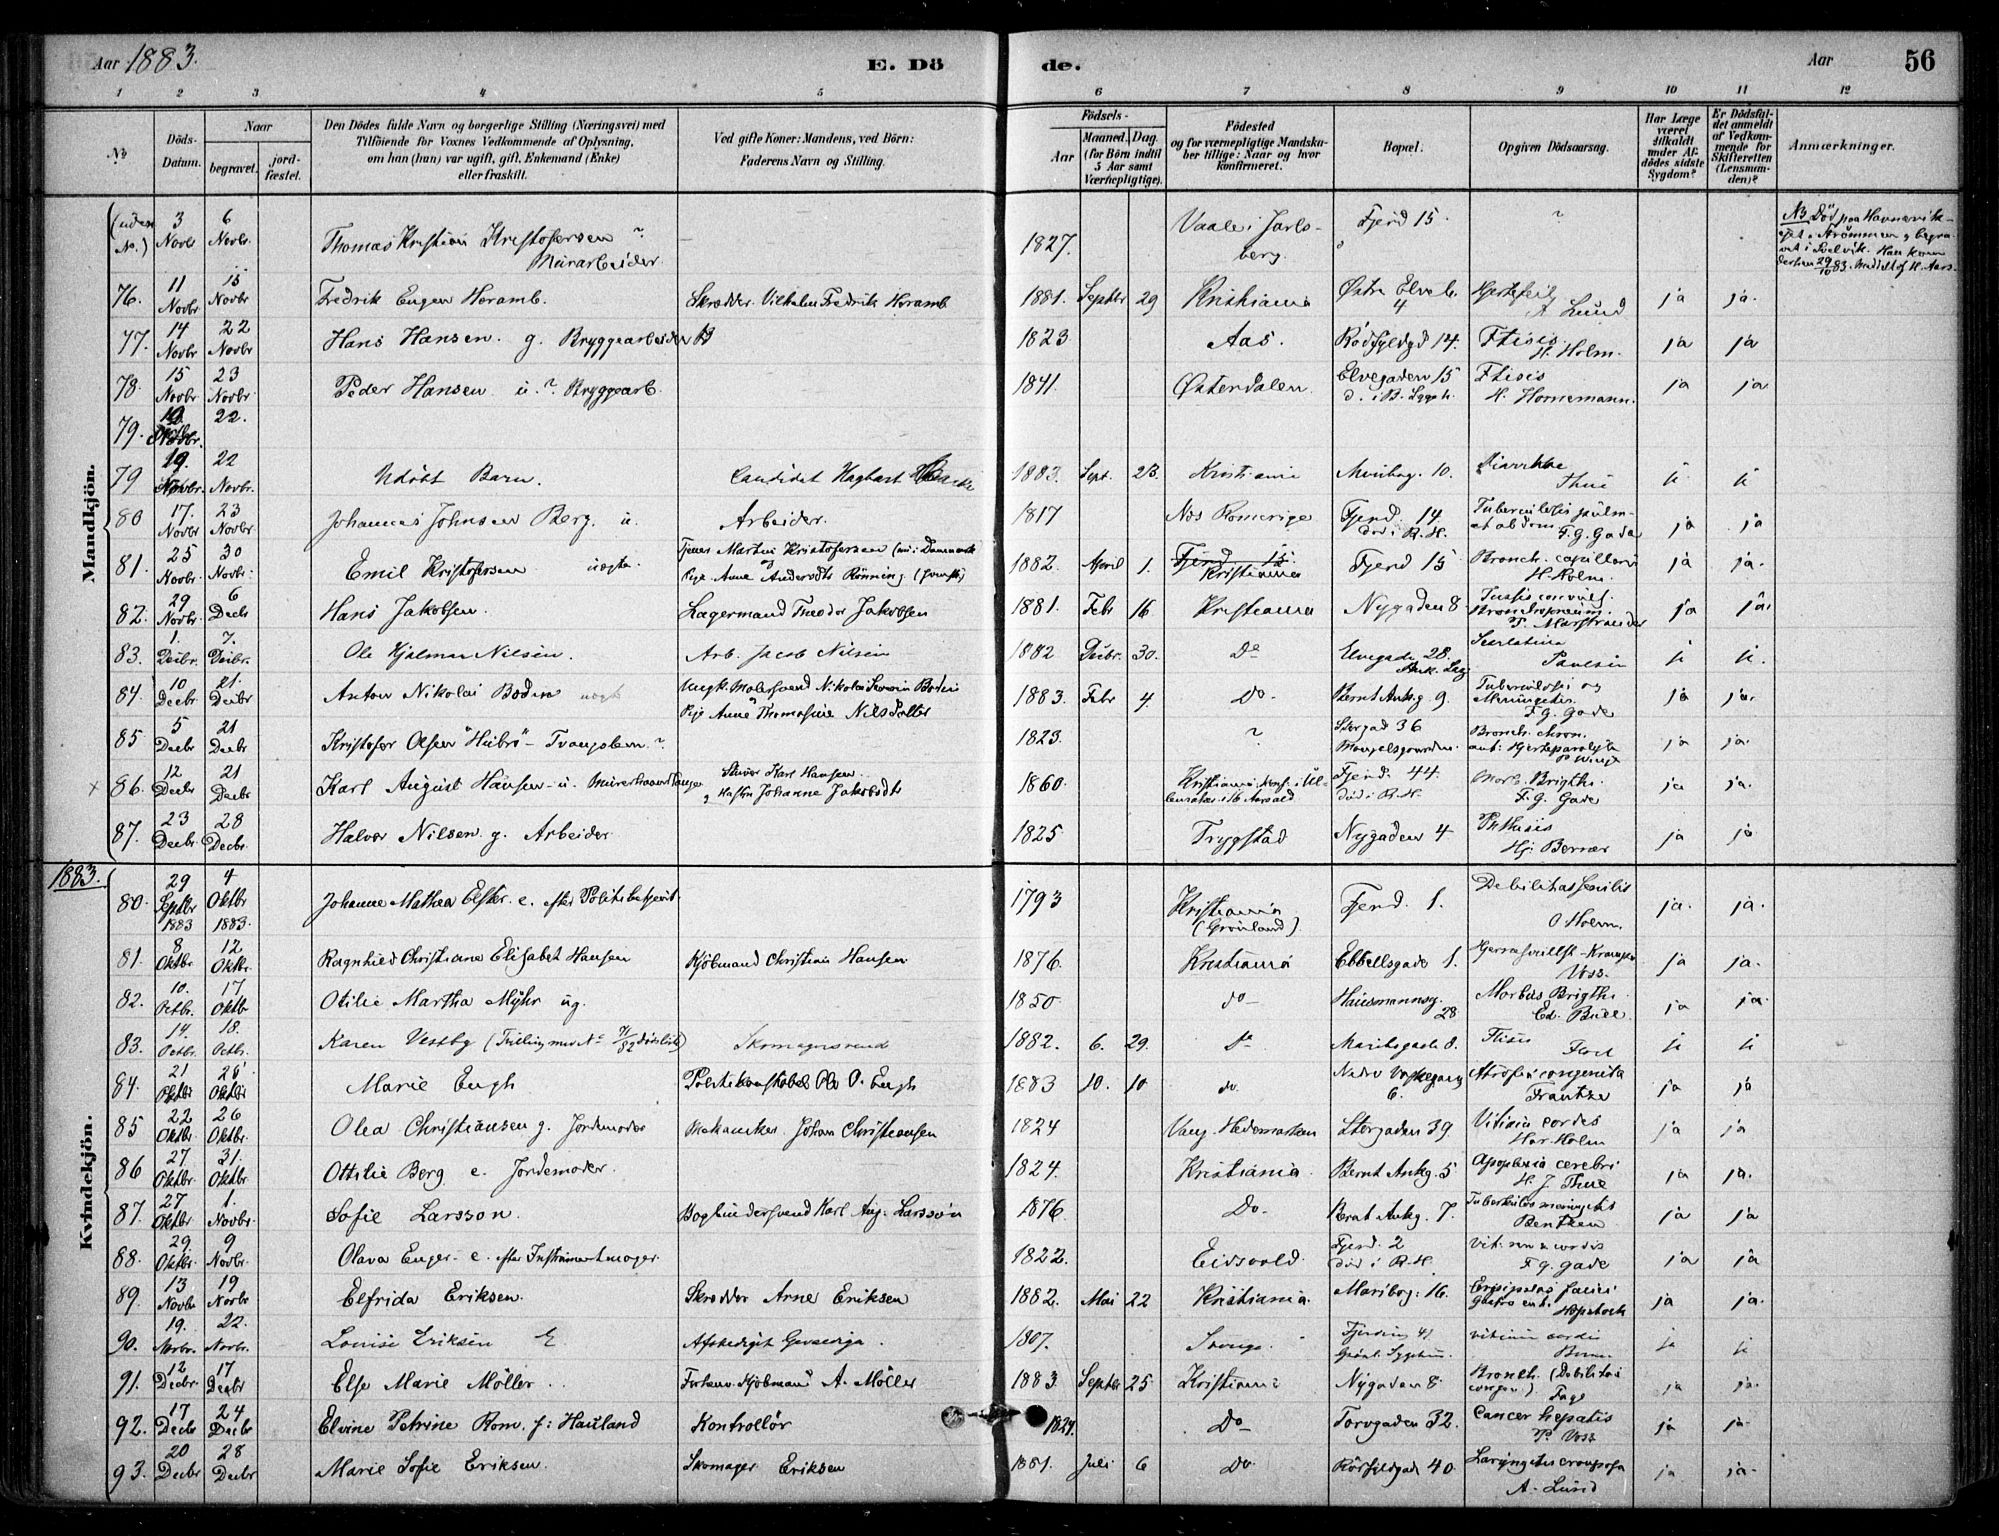 Aar 1883. E. Döde. Aar 56
1 2 3 4 5 6 7 8 9 10 11 12
№
Döds-Datum.
Naar
begravet.
jord-fæstet.
Den Dödes fulde Navn og borgerlige Stilling (Næringsvei) med
Tilföiende for Voxnes Vedkommende af Oplysning,
om han (hun) var ugift, gift, Enkemand (Enke)
eller fraskilt.
Ved gifte Koner: Mandens, ved Börn:
Faderens Navn og Stilling.
Födsels-
Aar
Maaned. Dag.
(for Börn indtil
5 Aar samt
Værnepligtige).
Födested
og for værnepligtige Mandsku-
ber tillige: Naar og hvor
konfirmeret.
Bopæl.
Opgiven Dödsaarsag.
Har Læge
været
tilkaldt
under Af-
dödes sidste
Sygdom?
Er Dödsfal-
det anmeldt
af Vedkom-
mende for
Skifteretten
(Lensman-
den)?
Anmærkninger.
Mandkjön.
(uden N.) 3 Novbr. 6 Novbr. Thomas Kristian Kristofersen ? Murarbeider 1827. Vaale i Jarlsberg. Fjerd 15 ? NB Död paa i Strömmen & begravet i Svelvik.
76. 11 Novbr 15 Novbr Fredrik Eugen Heramb. Skrædder Vilhelm Fredrik Heramb 1881. Septbr 29 Kristiania Østre Elveb. 4 Hjertefeil A Lund ja ja.
77. 14 Novbr 22 Novbr. Hans Hansen g. Bryggearbeider 1823 Aas. Rödfyldgd 14. Ftisis. H. Holm. ja ja
78. 15 Novbr. 23 Novbr. Peder Hansen u. ? Bryggearb. 1841. Østerdalen Elvegaden 15 Ftisis H. Hornemann. ja ja
79. Novbr. 22.
79 19. Novbr. 22 Novbr. Udöbt Barn. Candidat Hagbart 1883. Sept. 23. Kristiania Maribog. 10. Diarrhoe Thue ja ja
80 17. Novbr 23 Novbr Johannes Johnsen Berg. u. Arbeider. 1817 Nes Romerige Fjerd. 14. död i R.H. Tuberculosis pulm. et abdom F. G. Gade ja ja
81. 25 Novbr. 30 Novbr. Emil Kristofersen uægte Tjener Martin Kristofersen (nu i Danmark) Pige Anne Andersdtr Rönning 1882 April 1. Fjerd 15 Kristiania Fjerd 15 Bronch. capillaris H. Holm. ja ja.
82. 29 Novbr. 6 Decbr Hans Jakobsen. Lagermand Theodor Jakobsen 1881. Febr 16 Kristiania Nygaden 8. Tussis convuls. Bronchopneum. P. Marstrander ja ja.
83. 1. Decbr. 7. Decbr. Ole Hjalmar Nilsen. Arb. Jacob Nilsen 1882 Decbr. 30. Do Elvegade 28. Scarlatina Paulsen ja ja.
84. 10 Decbr. 21. Decbr. Anton Nikolai Boden uægt Ungk. Malersvend Nikolai Severin Boden Pige Anne Thomasine Nilsdatter 1883. Febr 4. Do. Bernt Ankg. 9. Tuberculosis og Meningitis. F. G. Gade ja ja.
85 5 Decbr 21 Decbr Kristofer Olsen "Hubro" - Tvangslem ? 1823. ? Storgad 36 Mangelsgaarden. Bronch. chron. ant. Hjerteparalyse ja ja.
86. 12 Decbr 21 Decbr Karl August Hansen - u. Murerhaandlanger Karl Hansen. Johanne Jakobsdtr 1860. Kristiania. Fjerd. 44. död i R.H. Morb. Brigthi. F. G. Gade ja ja.
87. 23 Decbr. 28 Decbr. Halvor Nilsen g. Arbeider 1825 Trygstad Nygaden 4 Phthisis Hj. Berner ja ja
1883.
Kvindekjön.
80. 29 Septbr 1883 4 Oktbr 1883. Johanne Mathea Elster. e. efter Politibetjent. 1793 Kristiania (Grönland) Fjerd. 1. Debilitas senilis O Holm. ja. ja.
81. 8 Oktbr. 12 Oktbr. Ragnhild Christiane Elisabet Hansen Kjöbmand Christian Hansen 1876. Kristiania Ebbellsgade 1. Voss. ja ja.
82. 10. Octbr. 17 Oktbr Otilie Martha Myhr ug. 1850 do- Hausmannsg. 28 Morbus Brigthi. Ed. Bull. ja ja.
83. 14. Octbr. 18. Octbr. Karen Vestby (Tvilling med No 71/82 ) Skomagersvend 1882. 6. 29. Do Maribogade 8. Ftisis ja ja
84. 21 Oktbr 25 Oktbr Marie Engh Politikonstabel Ole O. Engh 1883 10. 10 do. 6. Atrofia congenita Frantze ja ja
85 22 Oktbr. 26 Oktbr. Olea Christiansen g. Jordemoder Mekaniker Johan Christiansen 1824 Vang Hedemarken Storgaden 39. Vitium cordis Holm ja ja
86 27 Oktbr. 31. Oktbr Ottilie Berg e. Jordemoder. 1824. Kristiania. Bernt Ankg. 5 Apoplexia cerebri H. J. Thue ja ja.
87. 27 Oktbr 1. Novbr. Sofie Larsson. Bogbindersvend Karl Aug. Larsson 1876. Do- Bernt Ankg. 7. Tuberkulos meningit Bentzen ja ja
88. 29 Oktbr. 9 Novbr. Olava Enger - e. efter Instrumentmager. 1822. Eidsvold Fjerd. 2 död i R.H. F. G. Gade ja ja
89. 13 Novbr 19 Novbr. Elfrida Eriksen. Skrædder Arne Eriksen 1882. Mai 22 Kristiania. Maribog. 16. Erysipelas faciei ja ja.
90. 19. Novbr. 22. Novbr. Lovise Eriksen E Afskediget 1807. Sverige Fjerding 41 Grönl. Sygehus. vitium cordis ja ja
91. 12 Decbr. 17 Decbr Else Marie Möller. Forhenv. Kjöbmand A. Möller 1883. Septbr 25 Kristiania Nygaden 8. Bronch. (Debilitas congen.) ja ja.
92. 17 Decbr 24 Decbr Elvine Petrine Rom, f: Hauland Kontrollör 1824. Do Torvgaden 32. Cancer hepatis P. Voss ja ja.
93. 20 Decbr 28 Decbr Marie Sofie Eriksen. Skomager Eriksen 1881. Juli 6 Do. Rörfyldgad 40 Laryngitis crouposa A. Lund ja ja.